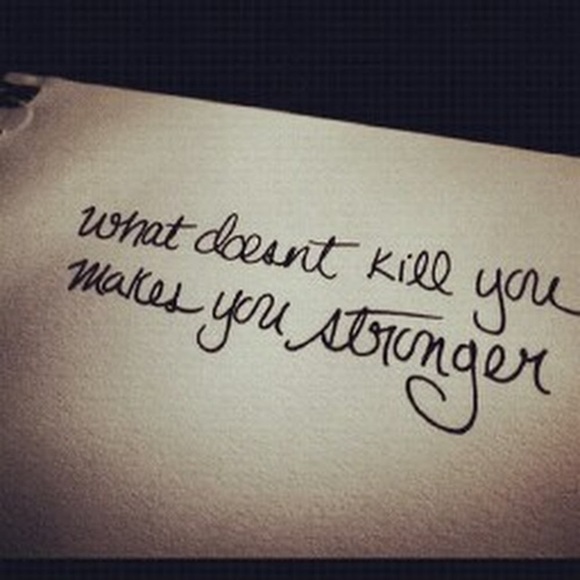 what doesnt kill you
makes you stronger